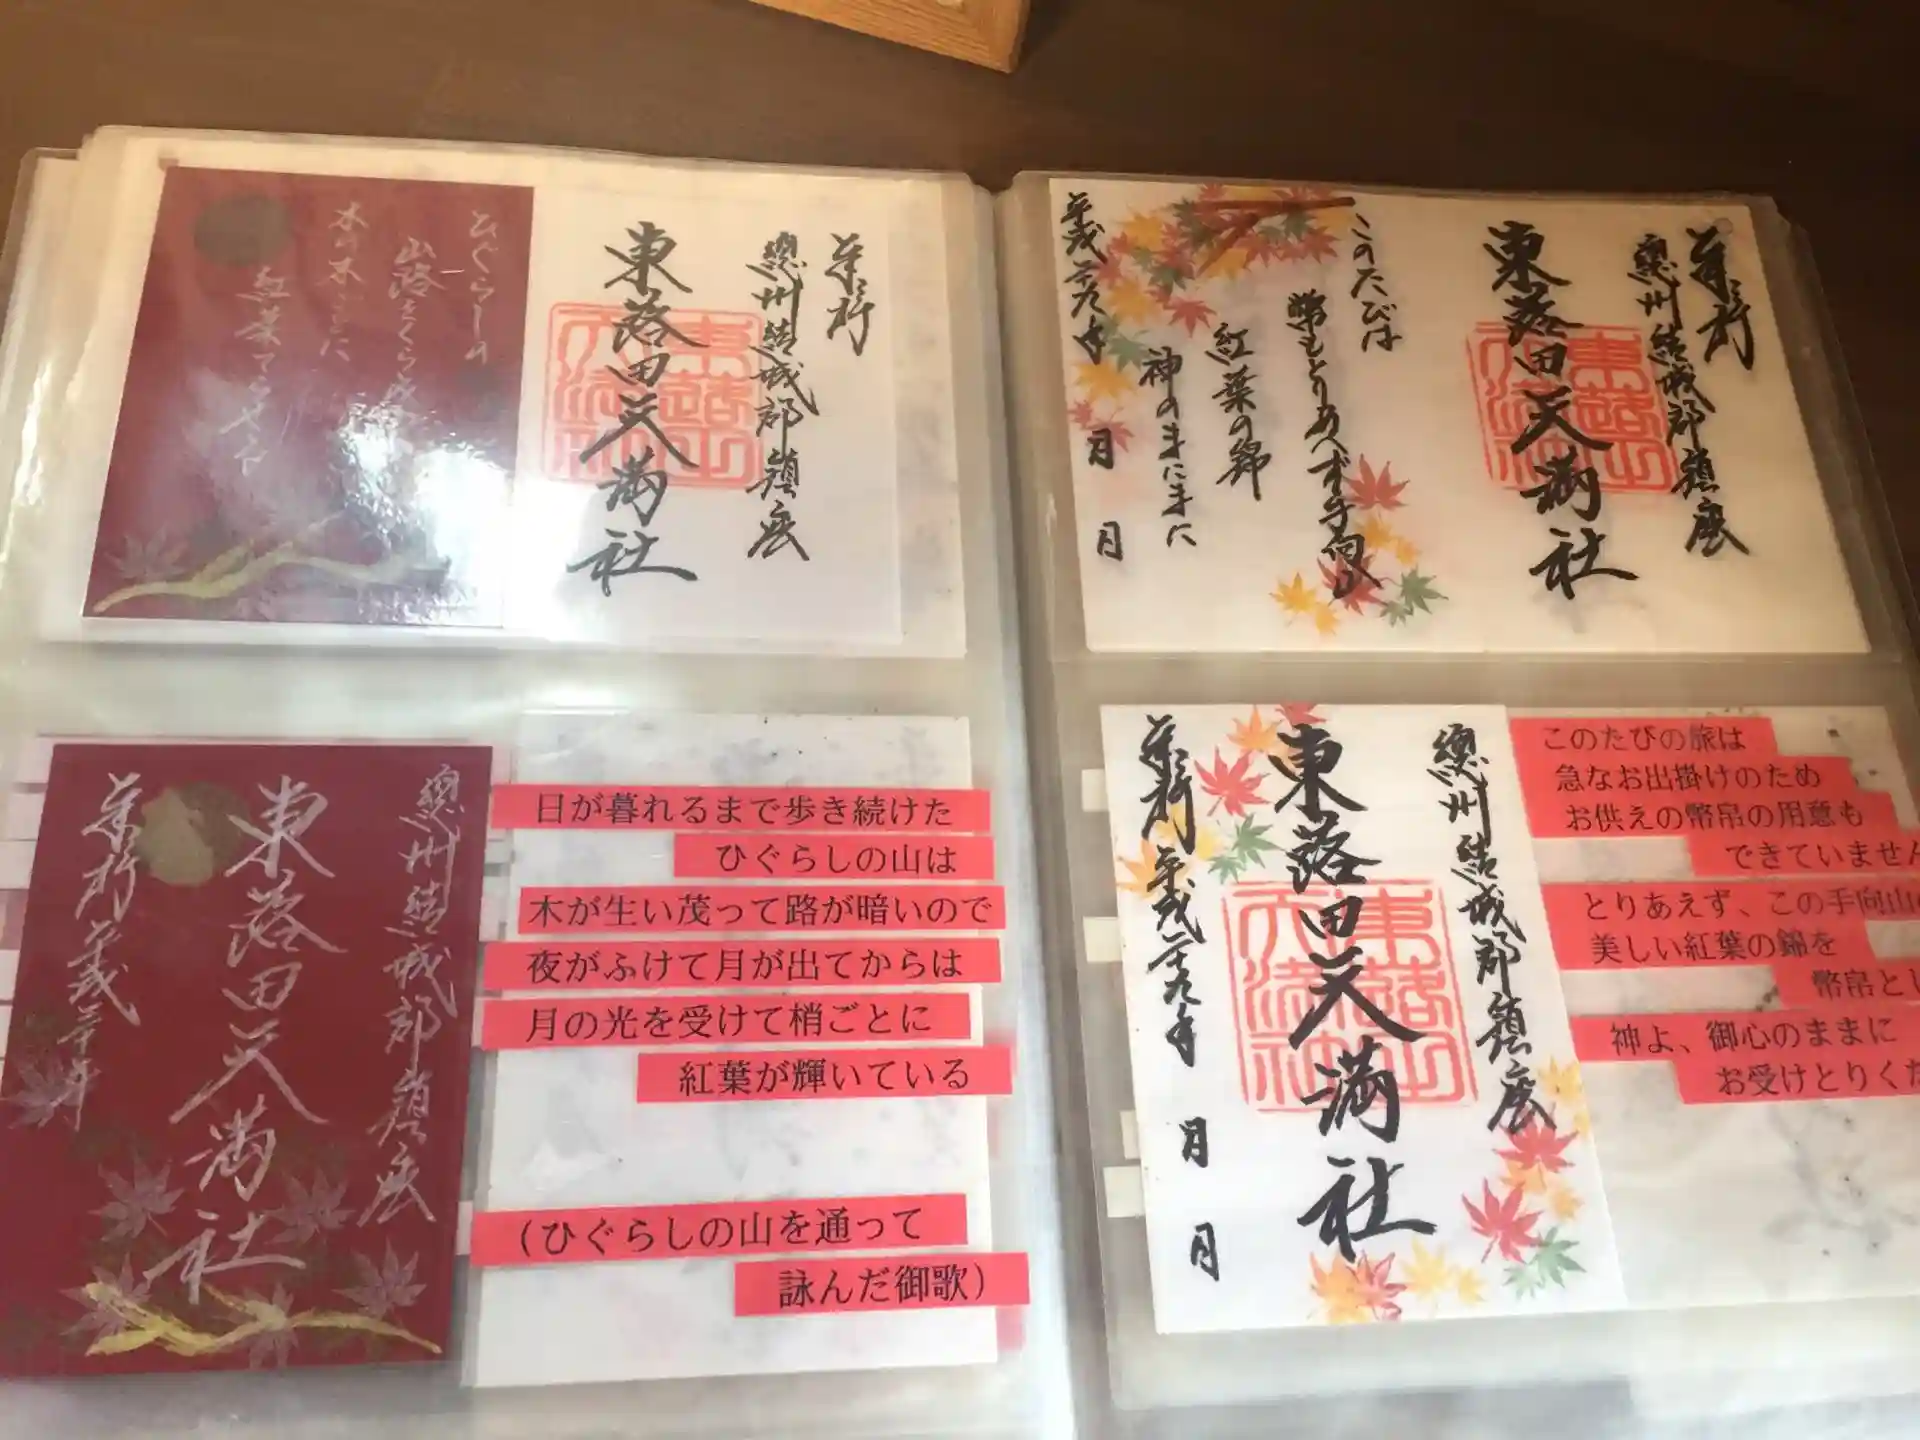 業祈
總州結城郡鎮座
東蕗田天満社
ひぐらしの
山路をくら
木の末ごとに
紅葉てらせる
業祈
總州結城郡鎮座
東蕗田天満社
このたびは
幣もとりあへず手向山
紅葉の錦
神のまにまに
平成二十九年
月
日
總州結城郡鎮座
東蕗田天満社
業祈
平成二十九年
日が暮れるまで歩き続けた
ひぐらしの山は
木が生い茂って路が暗いので
夜がふけて月が出てからは
月の光を受けて梢ごとに
紅葉が輝いている
(ひぐらしの山を通って
詠んだ御歌)
總州結城郡鎮座
東蕗田天満社
業祈
平成二十九年
月
日
このたびの旅は
急なお出掛けのため
お供えの幣帛の用意も
できていません
とりあえず、この手向山の
美しい紅葉の錦を
幣帛とし
神よ、御心のままに
お受けとりくだ